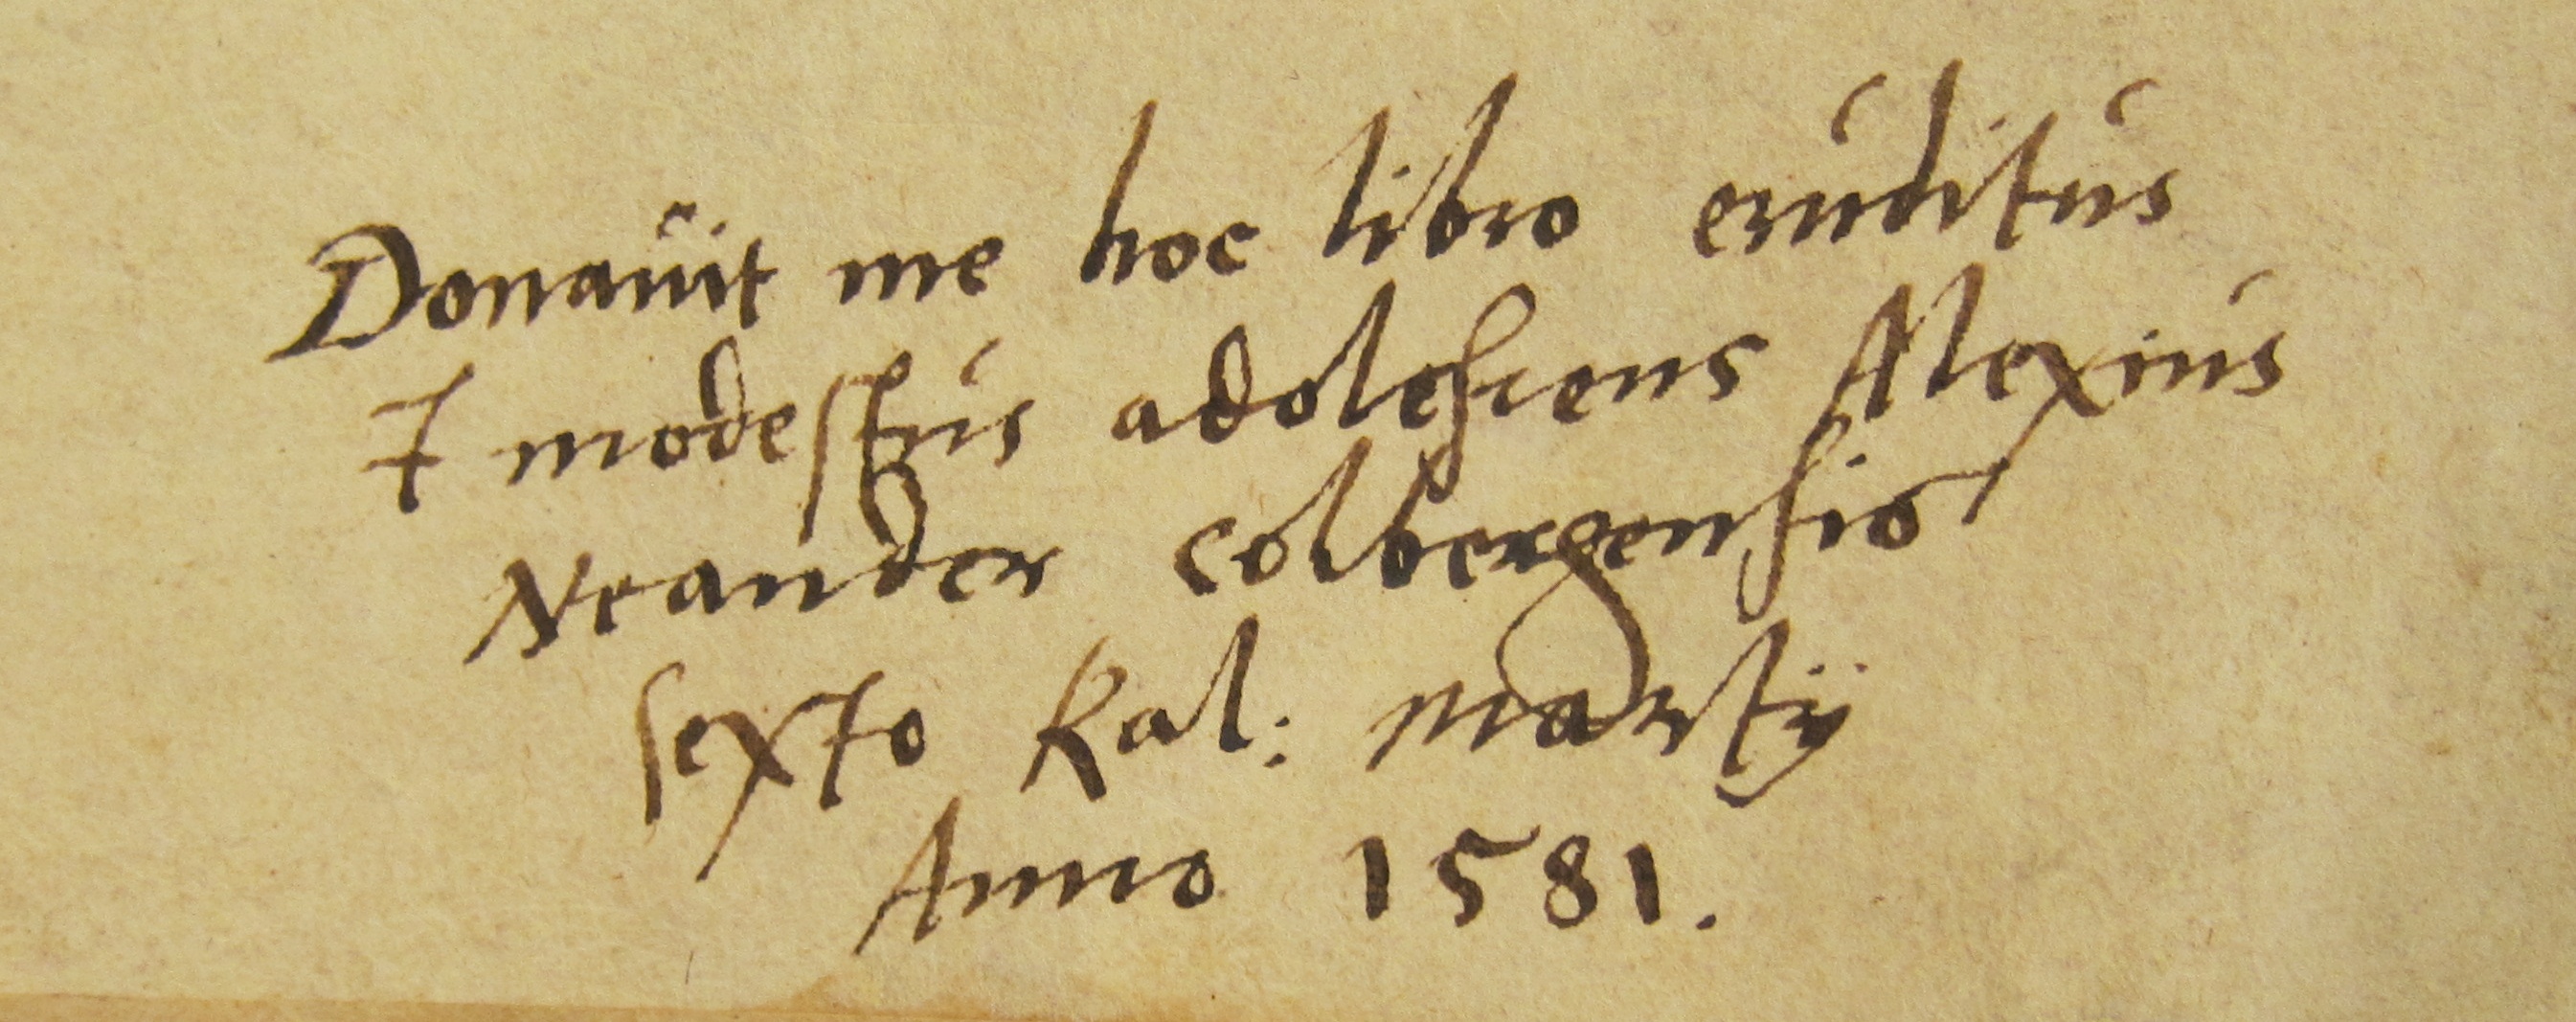 Donauit me hoc libro eruditus
& modestus adolescens Alexius
Neander colbergensis
sexto Kal: martij
Anno 1581.